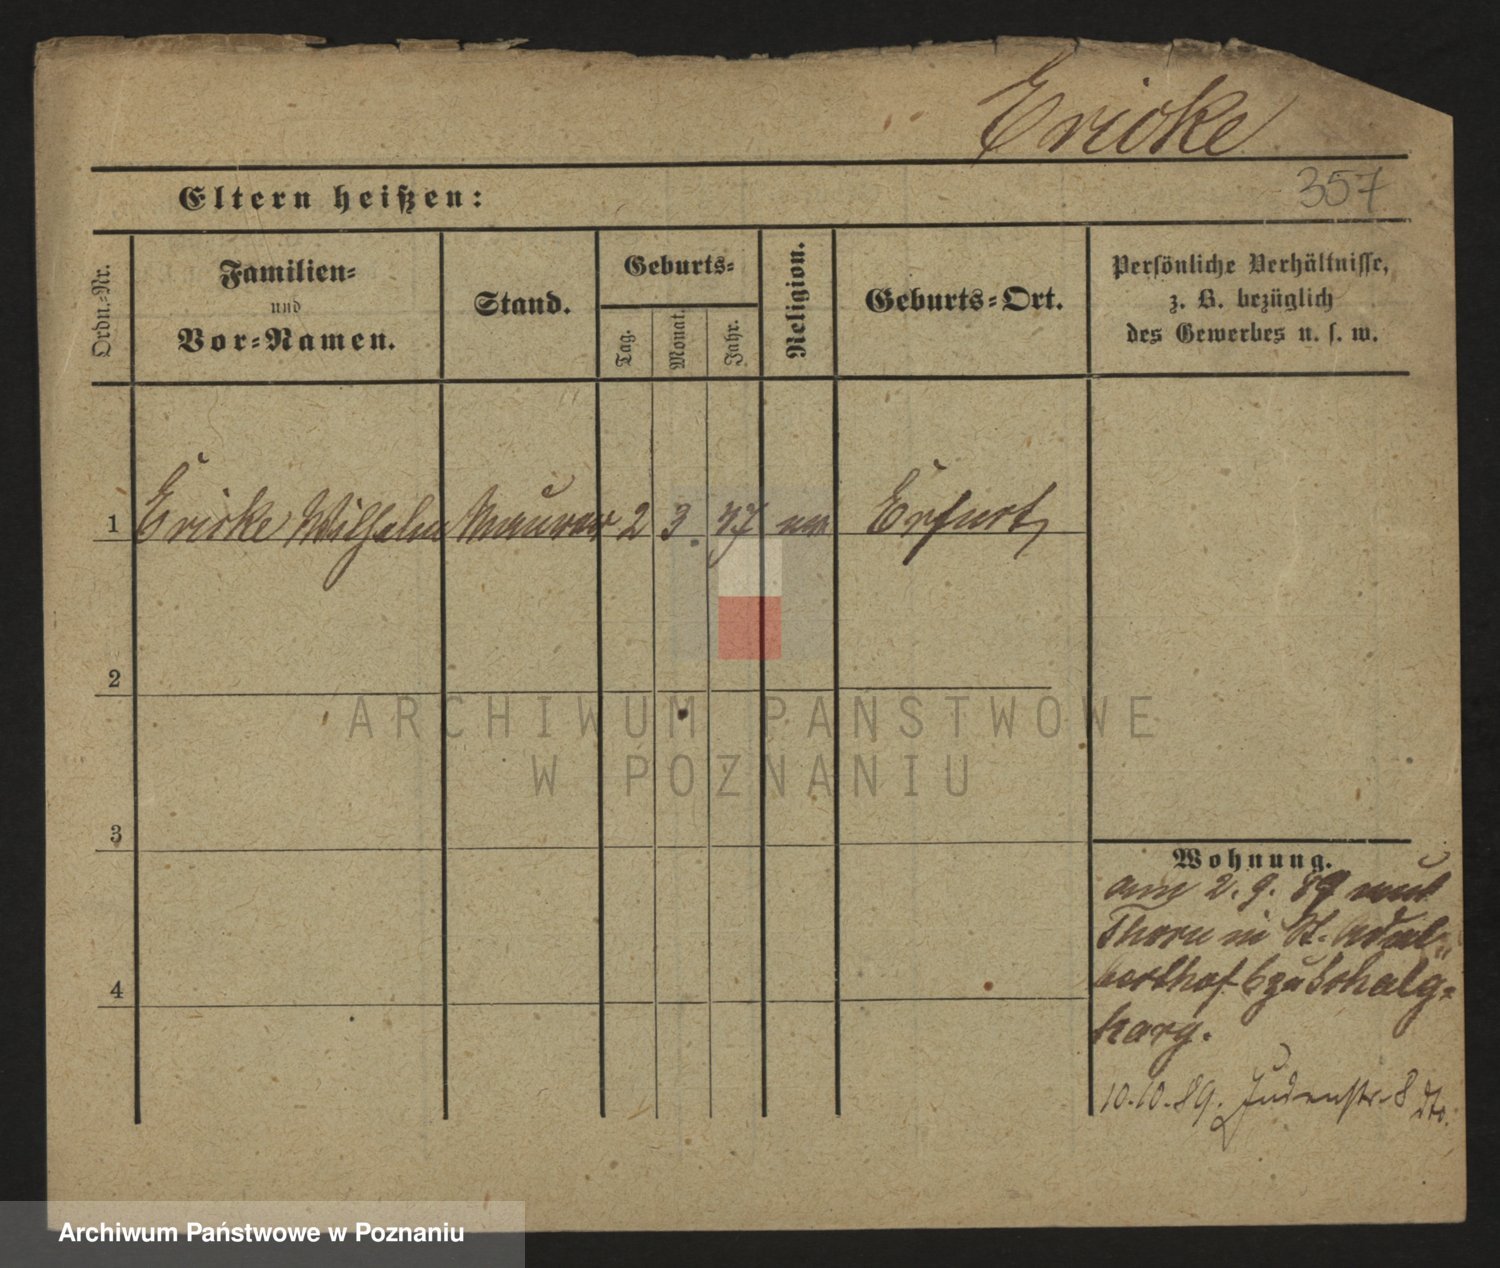 Ericke
357
Eltern heißen:
Ordn.-Nr.
Familien-
und
Vor-Namen.
Stand.
Geburts-
Tag.
Monat.
Jahr.
Religion.
Geburts-Ort.
Persönliche Verhältnisse,
z. B. bezüglich
des Gewerbes u. s. w.
1 Ericke Wilhelm Maurer 2 3 Erfurt
2
3
4
Wohnung.
am 2. 9. 89 nach
Thorn in St.
10.10.89. Judenstr. 8
ARCHIWUM PAŃSTWOWE
W POZNANIU
Archiwum Państwowe w Poznaniu